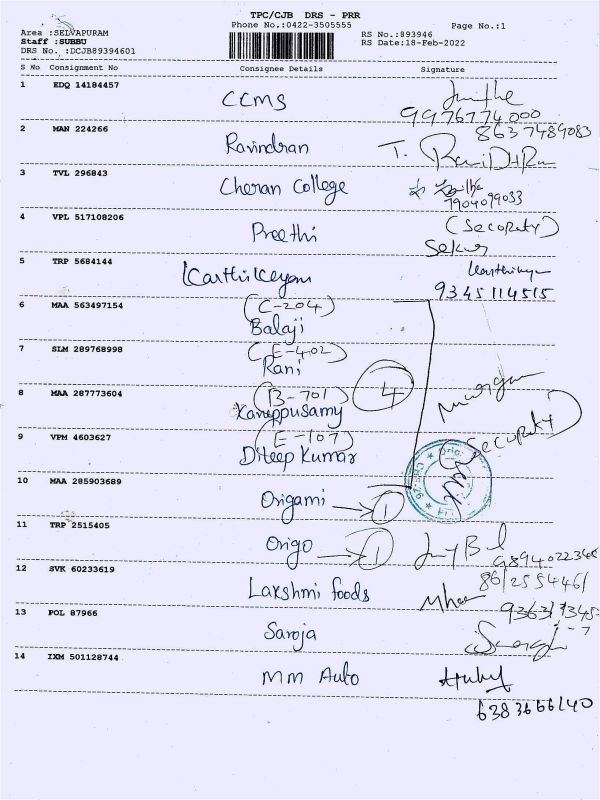 TPC/CJB DRS - PRR
Phone No.:0422-3505555
Page No.:1
Area :SELVAPURAM
Staff :SUBBU
DRS No. :DCJB89394601
RS No.:893946
RS Date:18-Feb-2022
S No Consignment No Consignee Details Signature
1 EDQ 14184457 CCMS
9976774000
2 MAN 224266 Ravindran T. RaviDHRan
8637489083
3 TVL 296843 Cheran College
7904099033
4 VPL 517108206 Preethi (Secoraty)
Sekar
5 TRP 5684144 Karthikeyan Karthikeyan
9345114515
6 MAA 563497154 (C-204)
Balaji
7 SLM 289768998 (E-402)
Rani
8 MAA 287773604 (B-701) 4 Murugan
Karuppusamy
9 VPM 4603627 (E-107) Secoraty)
Dileep Kumar
10 MAA 285903689 Origami → 1
11 TRP 2515405 Origo → 1
12 SVK 60233619 Lakshmi foods
13 POL 87966 Saroja
14 IXM 501128744 MM Auto
6383666140